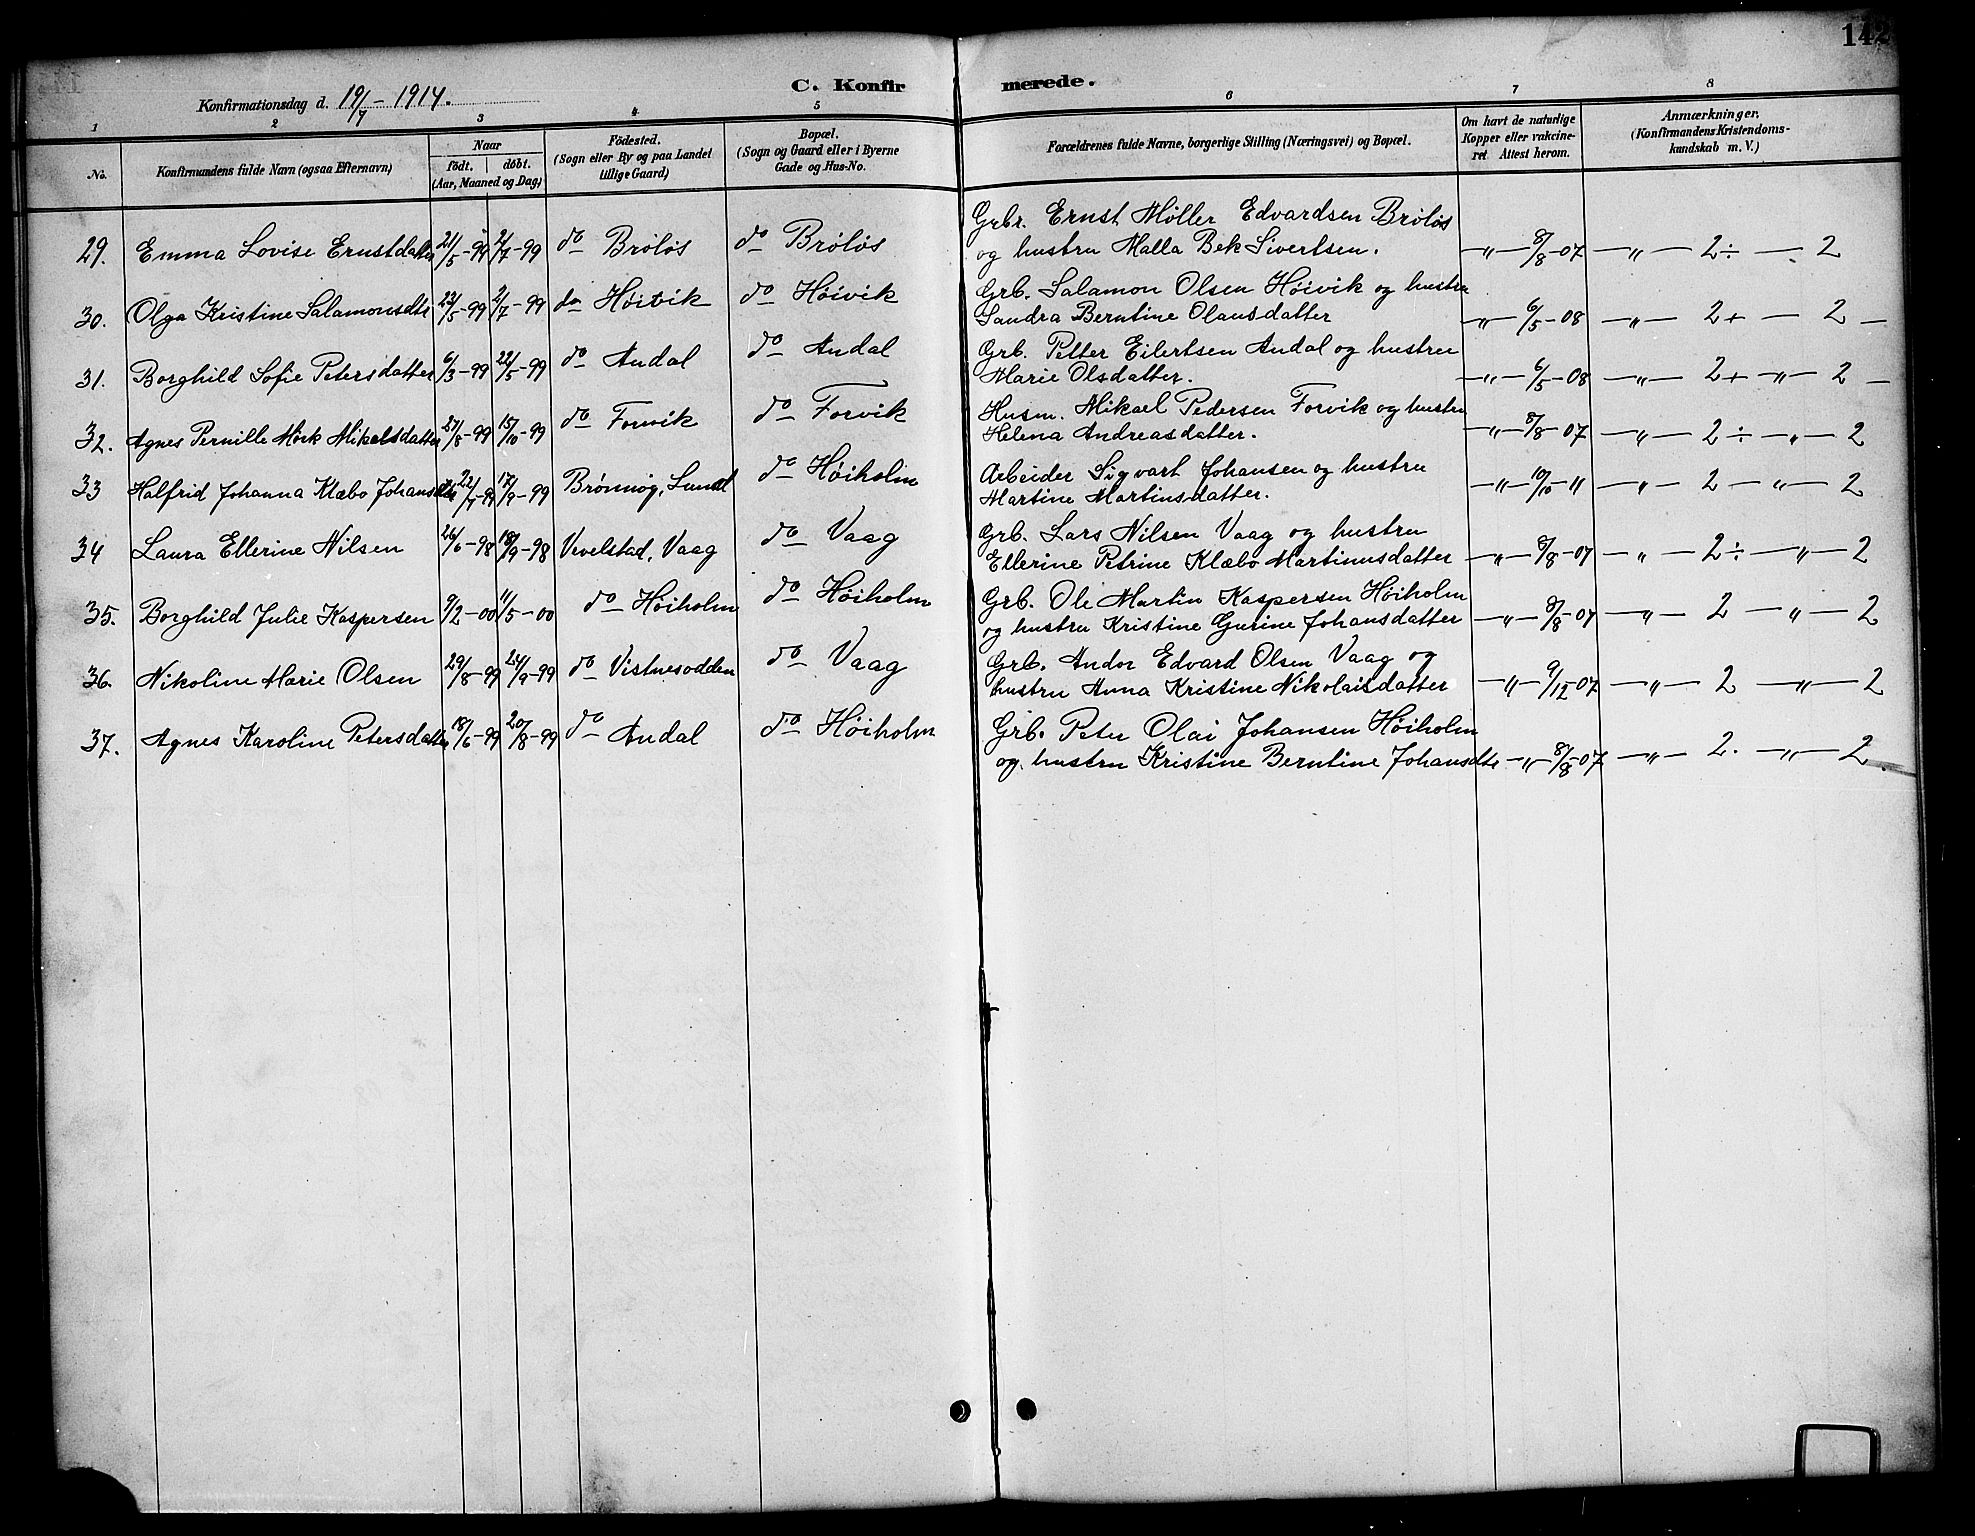 142
C. Konfirmerede.
Konfirmationsdag d. 19/7 - 1914.
1 2 3 4 5 6 7 8
No. Konfirmandens fulde Navn (ogsaa Efternavn) Naar født. døbt. (Aar, Maaned og Dag) Födested. (Sogn eller By og paa Landet tillige Gaard) Bopæl. (Sogn og Gaard eller i Byerne Gade og Hus-No. Forældrenes fulde Navne, borgerlige Stilling (Næringsvei) og Bopæl. Om havt de naturlige Kopper eller vakcineret Attest herom. Anmærkninger. (Konfirmandens Kristendomskundskab m. V.)
29. Emma Lovise Ernstdatter 21/5-99 2/7-99 do Bröløs do Bröløs Grbr. Ernst Möller Edvardsen Bröløs
og hustru Malla Bek Sivertsen. -"- 8/8-07 -"- 2÷ - 2
30. Olga Kristine Salamonsdtr 22/5-99 2/7-99 do Høivik do Høivik Grb. Salamon Olsen Høivik og hustru
Sandra Berntine Olausdatter -"- 6/5-08 -"- 2+ - 2 -
31. Borghild Sofie Petersdatter 6/3-99 22/5-99 do Andal do Andal Grb. Petter Eilertsen Andal og hustru
Marie Olsdatter. -"- 6/5-08 -"- 2+ -"- 2 -
32. Agnes Pernille Mörk Mikalsdatter 27/8-99 15/10-99 do Forvik do Forvik Husm. Mikael Pedersen Forvik og hustru
Helena Andreasdatter. -"- 8/8-07 -"- 2÷ -"- 2
33 Halfrid Johanna Klæbo Johansdtr 22/7-99 17/9-99 Brönnöy, Sund do Høiholm Arbeider Sigvart Johansen og hustru
Martine Martinsdatter. -"- 10/10-11 -"- 2 -"- 2
34 Laura Ellerine Nilsen 26/6-98 18/9-98 Vevelstad, Vaag do Vaag Grb. Lars Nilsen Vaag og hustru
Ellerine Petrine Klæbo Martinusdatter -"- 8/8-07 -"- 2÷ -"- 2
35. Borghild Julie Kaspersen 9/2-00 11/5-00 do Høiholm do Høiholm Grb. Ole Martin Kaspersen Høiholm
og hustru Kristine Gurine Johansdatter -"- 8/8-07 -"- 2 -"- 2
36. Nikoline Marie Olsen 29/8-99 24/9-99 do Vistnesodden do Vaag Grb. Andor Edvard Olsen Vaag og
hustru Anna Kristine Nikolaisdatter -"- 9/12-07 -"- 2 -"- 2
37. Agnes Karoline Petersdatter 18/6-99 20/8-99 do Andal do Høiholm Grb. Peter Olai Johansen Høiholm
og hustru Kristine Berntine Johansdtr -"- 8/8-07 -"- 2. -"- 2